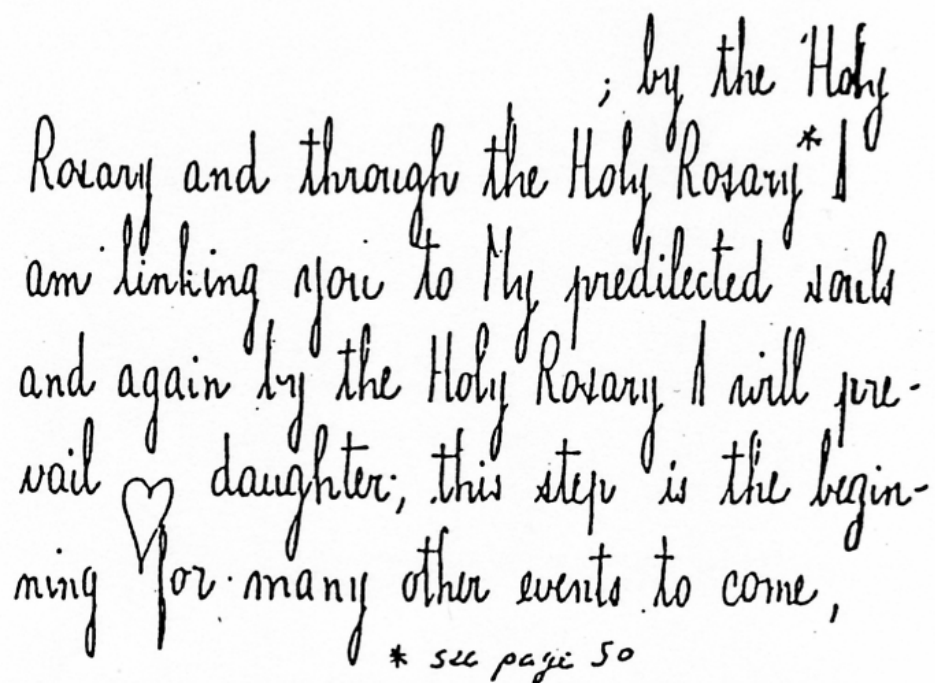 ; by the Holy
Rosary and through the Holy Rosary* I
am linking you to My predilected souls
and again by the Holy Rosary I will pre-
vail ♡ daughter; this step is the begin-
ning for many other events to come,
* see page 50